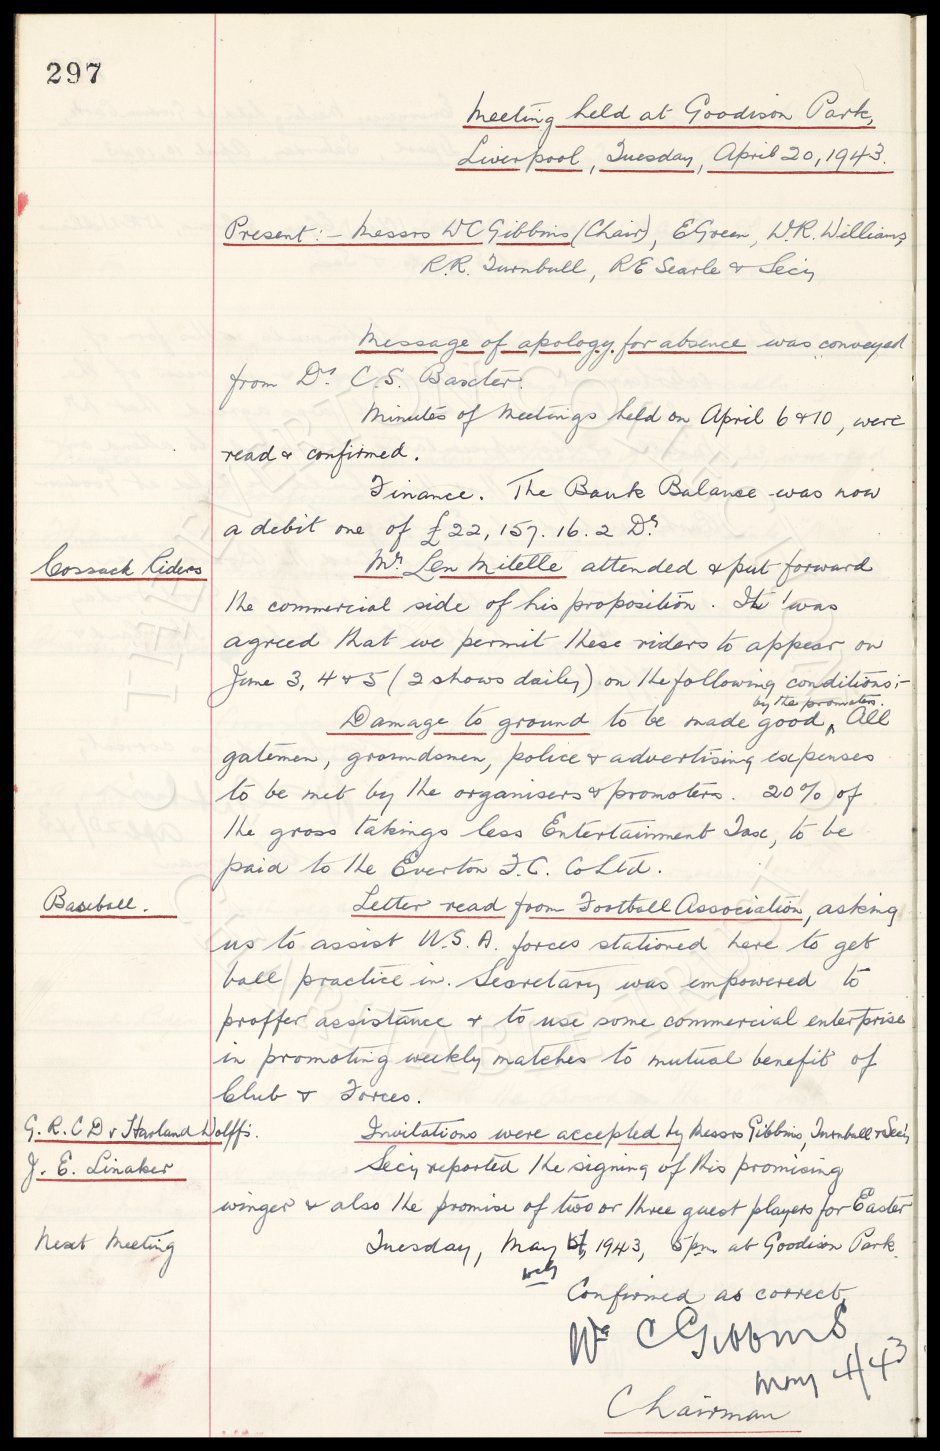 297
Meeting held at Goodison Park,
Liverpool, Tuesday, April 20, 1943.
Present:- Messrs WC Gibbins (Chair), E Green, W.R. Williams,
R.R. Turnbull, R E Searle & Secy
Message of apology for absence was conveyed
from Dr. C.S. Baxter.
Minutes of Meetings held on April 6 & 10, were
read & confirmed.
Finance. The Bank Balance was now
a debit one of £22,157.16.2 Dr
Cossack Riders
Mr Len Mitelle attended & put forward
the commercial side of his proposition. It was
agreed that we permit these riders to appear on
June 3, 4 & 5 (2 shows daily) on the following conditions:-
by the promoters.
Damage to ground to be made good, All
gatemen, groundsmen, police & advertising expenses
to be met by the organisers & promoters. 20% of
the gross takings less Entertainment Tax, to be
paid to the Everton F.C. Co Ltd.
Baseball.
Letter read from Football Association, asking
us to assist U.S.A. forces stationed here to get
ball practice in. Secretary was empowered to
proffer assistance & to use some commercial enterprise
in promoting weekly matches to mutual benefit of
Club & Forces.
G.R.C D v Harland Wolffs.
Invitations were accepted by Messrs Gibbins, Turnbull & Secy
J. E. Linaker
Secy reported the signing of this promising
winger & also the promise of two or three guest players for Easter
Next Meeting
Tuesday, May 1943, 5pm at Goodison Park.
Confirmed as correct,
Wm C Gibbins
May 4/43
Chairman